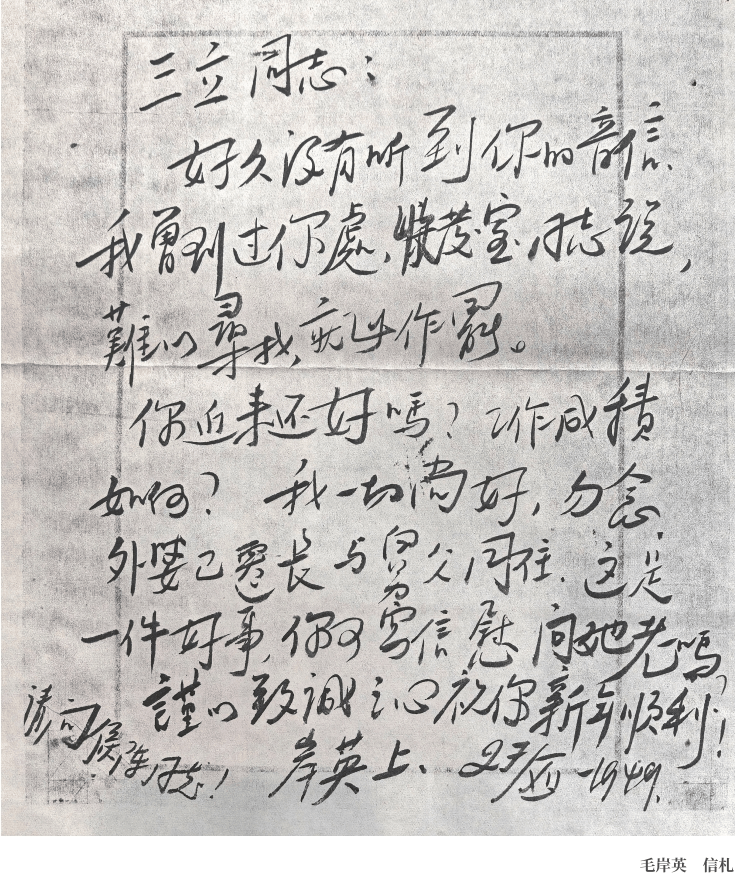 三立同志：
好久没有听到你的音信、
我曾到过你處，收发室同志说，
難以尋找，就此作罷。
你近来还好吗？工作成積
如何？ 我一切尚好，勿念。
外婆已遷長与舅父同住，这是
一件好事，你可写信慰问她老吗？
謹以致诚之心祝你新年顺利！
请向同志！
岸英上、27/企-1949.
毛岸英 信札